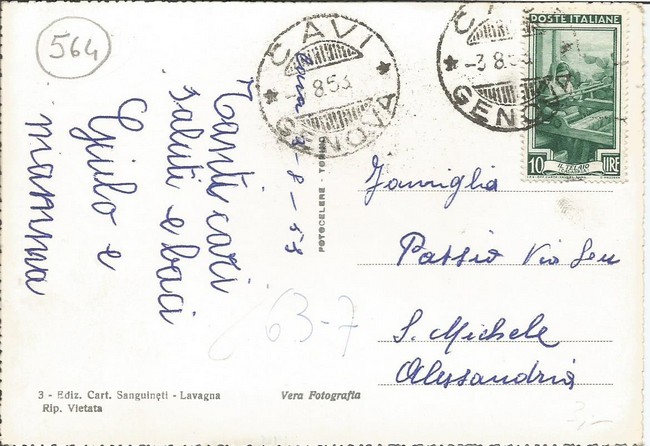 564
CAVI
GENOVA
8.53
-3.8.53
GENOVA
POSTE ITALIANE
IL TELAIO
10 LIRE
3-8-53
Tanti cari
saluti e baci
Giulo e
mamma
FOTOCELERE - TORINO
Famiglia
Passio Via
S. Michele
Alessandria
63-7
3 - Ediz. Cart. Sanguineti - Lavagna
Rip. Vietata
Vera Fotografia